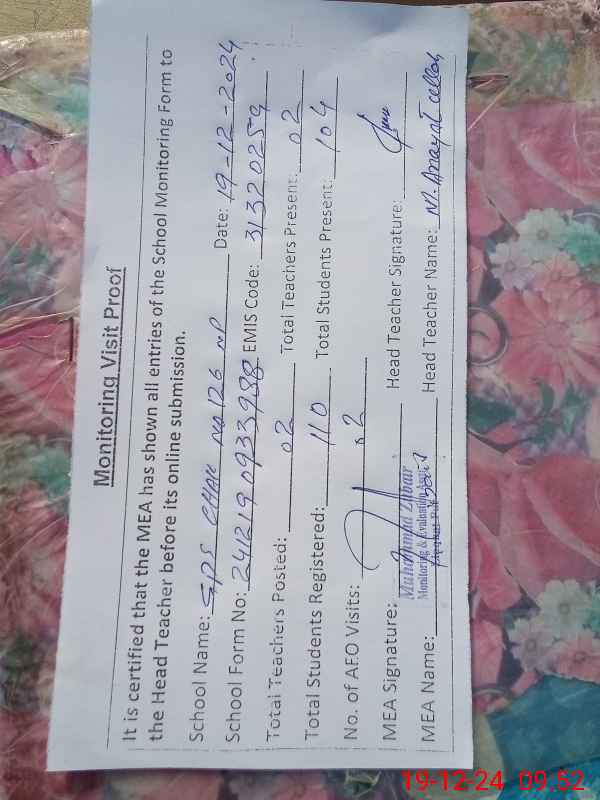 Monitoring Visit Proof
It is certified that the MEA has shown all entries of the School Monitoring Form to
the Head Teacher before its online submission.
School Name: GPS CHAK NO 126 NP Date: 19-12-2024
School Form No: EMIS Code: 31320259
Total Teachers Posted: 02 Total Teachers Present: 02
Total Students Registered: 110 Total Students Present: 104
No. of AEO Visits: 02
MEA Signature: Head Teacher Signature:
Muhammad Zubair
Monitoring & Evaluation Asstt
MEA Name: Head Teacher Name: M. Anayat ullah
19-12-24 09:52